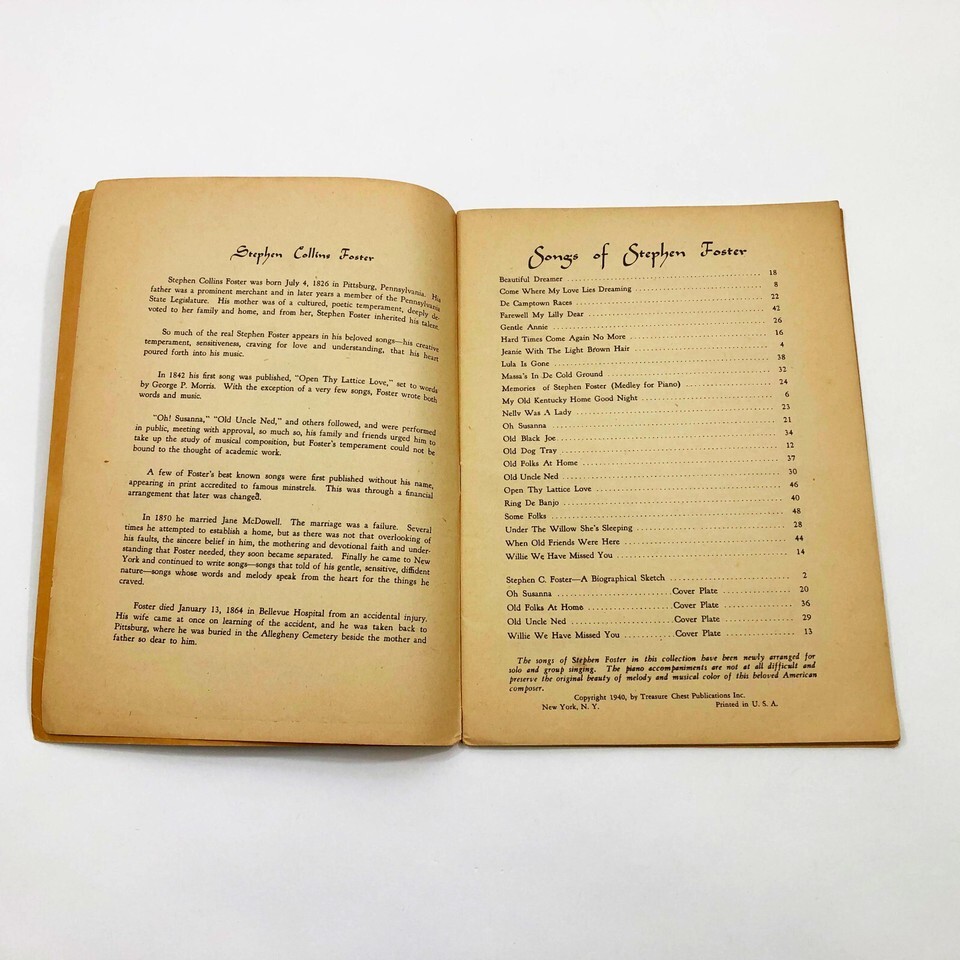 Stephen Collins Foster
Stephen Collins Foster was born July 4, 1826 in Pittsburg, Pennsylvania. His
father was a prominent merchant and in later years a member of the Pennsylvania
State Legislature. His mother was of a cultured, poetic temperament, deeply de-
voted to her family and home, and from her, Stephen Foster inherited his talent.
So much of the real Stephen Foster appears in his beloved songs—his creative
temperament, sensitiveness, craving for love and understanding, that his heart
poured forth into his music.
In 1842 his first song was published, "Open Thy Lattice Love," set to words
by George P. Morris. With the exception of a very few songs, Foster wrote both
words and music.
"Oh! Susanna," "Old Uncle Ned," and others followed, and were performed
in public, meeting with approval, so much so, his family and friends urged him to
take up the study of musical composition, but Foster's temperament could not be
bound to the thought of academic work.
A few of Foster's best known songs were first published without his name,
appearing in print accredited to famous minstrels. This was through a financial
arrangement that later was changed.
In 1850 he married Jane McDowell. The marriage was a failure. Several
times he attempted to establish a home, but as there was not that overlooking of
his faults, the sincere belief in him, the mothering and devotional faith and under-
standing that Foster needed, they soon became separated. Finally he came to New
York and continued to write songs—songs that told of his gentle, sensitive, diffident
nature—songs whose words and melody speak from the heart for the things he
craved.
Foster died January 13, 1864 in Bellevue Hospital from an accidental injury.
His wife came at once on learning of the accident, and he was taken back to
Pittsburg, where he was buried in the Allegheny Cemetery beside the mother and
father so dear to him.
Songs of Stephen Foster
Beautiful Dreamer 18
Come Where My Love Lies Dreaming 8
De Camptown Races 22
Farewell My Lilly Dear 42
Gentle Annie 26
Hard Times Come Again No More 16
Jeanie With The Light Brown Hair 4
Lula Is Gone 38
Massa's In De Cold Ground 32
Memories of Stephen Foster (Medley for Piano) 24
My Old Kentucky Home Good Night 6
Nelly Was A Lady 23
Oh Susanna 21
Old Black Joe 34
Old Dog Tray 12
Old Folks At Home 37
Old Uncle Ned 30
Open Thy Lattice Love 46
Ring De Banjo 40
Some Folks 48
Under The Willow She's Sleeping 28
When Old Friends Were Here 44
Willie We Have Missed You 14
Stephen C. Foster—A Biographical Sketch 2
Oh Susanna Cover Plate 20
Old Folks At Home Cover Plate 36
Old Uncle Ned Cover Plate 29
Willie We Have Missed You Cover Plate 13
The songs of Stephen Foster in this collection have been newly arranged for
solo and group singing. The piano accompaniments are not at all difficult and
preserve the original beauty of melody and musical color of this beloved American
composer.
Copyright 1940, by Treasure Chest Publications Inc.
New York, N. Y. Printed in U. S. A.